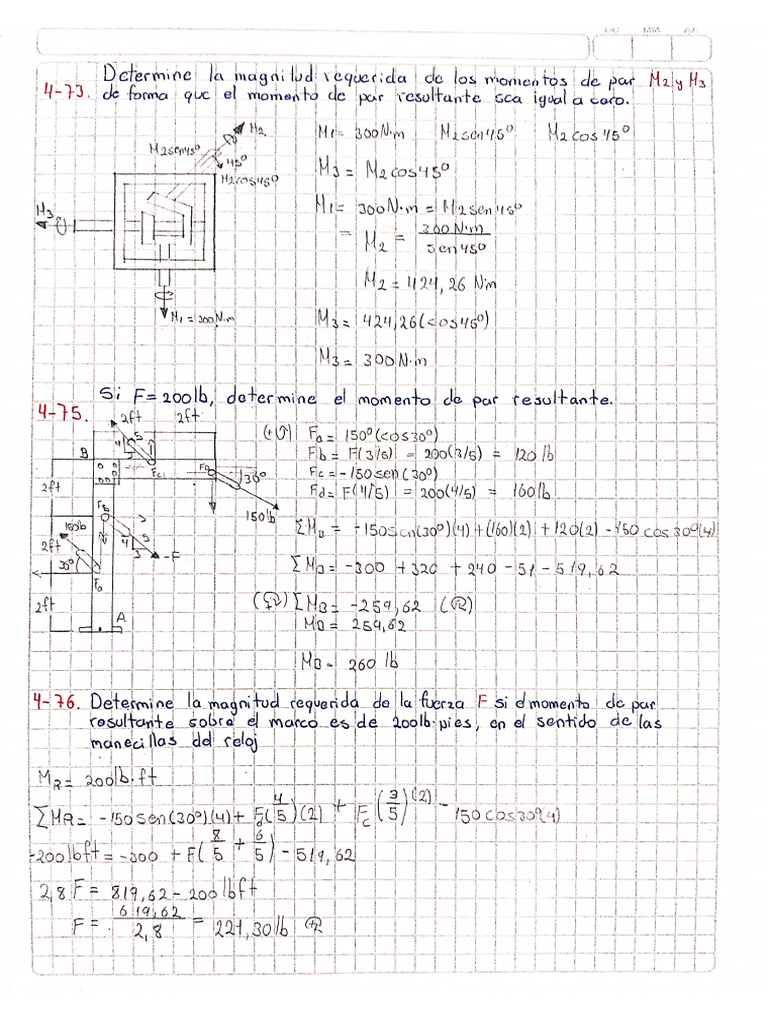 DD MM AA
4-73. Determine la magnitud requerida de los momentos de par M2 y M3
de forma que el momento de par resultante sea igual a cero.
M2
M2sen45°
45°
M2cos45°
M3
M1 = 300N.m
M1= 300N.m M2sen45° M2cos45°
M3= M2cos45°
M1= 300N.m = M2sen45°
= M2 = 300N.m / sen45°
M2 = 424,26 Nm
M3 = 424,26(cos45°)
M3= 300N.m
4-75. Si F=200lb, determine el momento de par resultante.
2ft 2ft
B
4 5 3
Fc
30°
150lb
2ft
2ft
2ft
150lb
30°
4 5 3
-F
A
(+↺) Fa = 150°(cos30°)
Fb = F(3/5) = 200(3/5) = 120 lb
Fc = -150sen(30°)
Fd = F(4/5) = 200(4/5) = 160lb
ΣMB = -150sen(30°)(4)+(160)(2)+120(2)-150 cos30°(4)
ΣMB= -300 +320 +240 -51-519,62
ΣMB= -259,62
MB = 259,62
MB= 260 lb
4-76. Determine la magnitud requerida de la fuerza F si el momento de par
resultante sobre el marco es de 200lb.pies, en el sentido de las
manecillas del reloj
MR= 200lb.ft
ΣMR= -150sen(30°)(4)+ Fd(4/5)(2) + Fc(3/5)(2) - 150cos30°(4)
-200lbft = -300 + F(8/5 + 6/5) - 519,62
2,8 F = 819,62 - 200lbft
F = 619,62 / 2,8 = 221,30lb